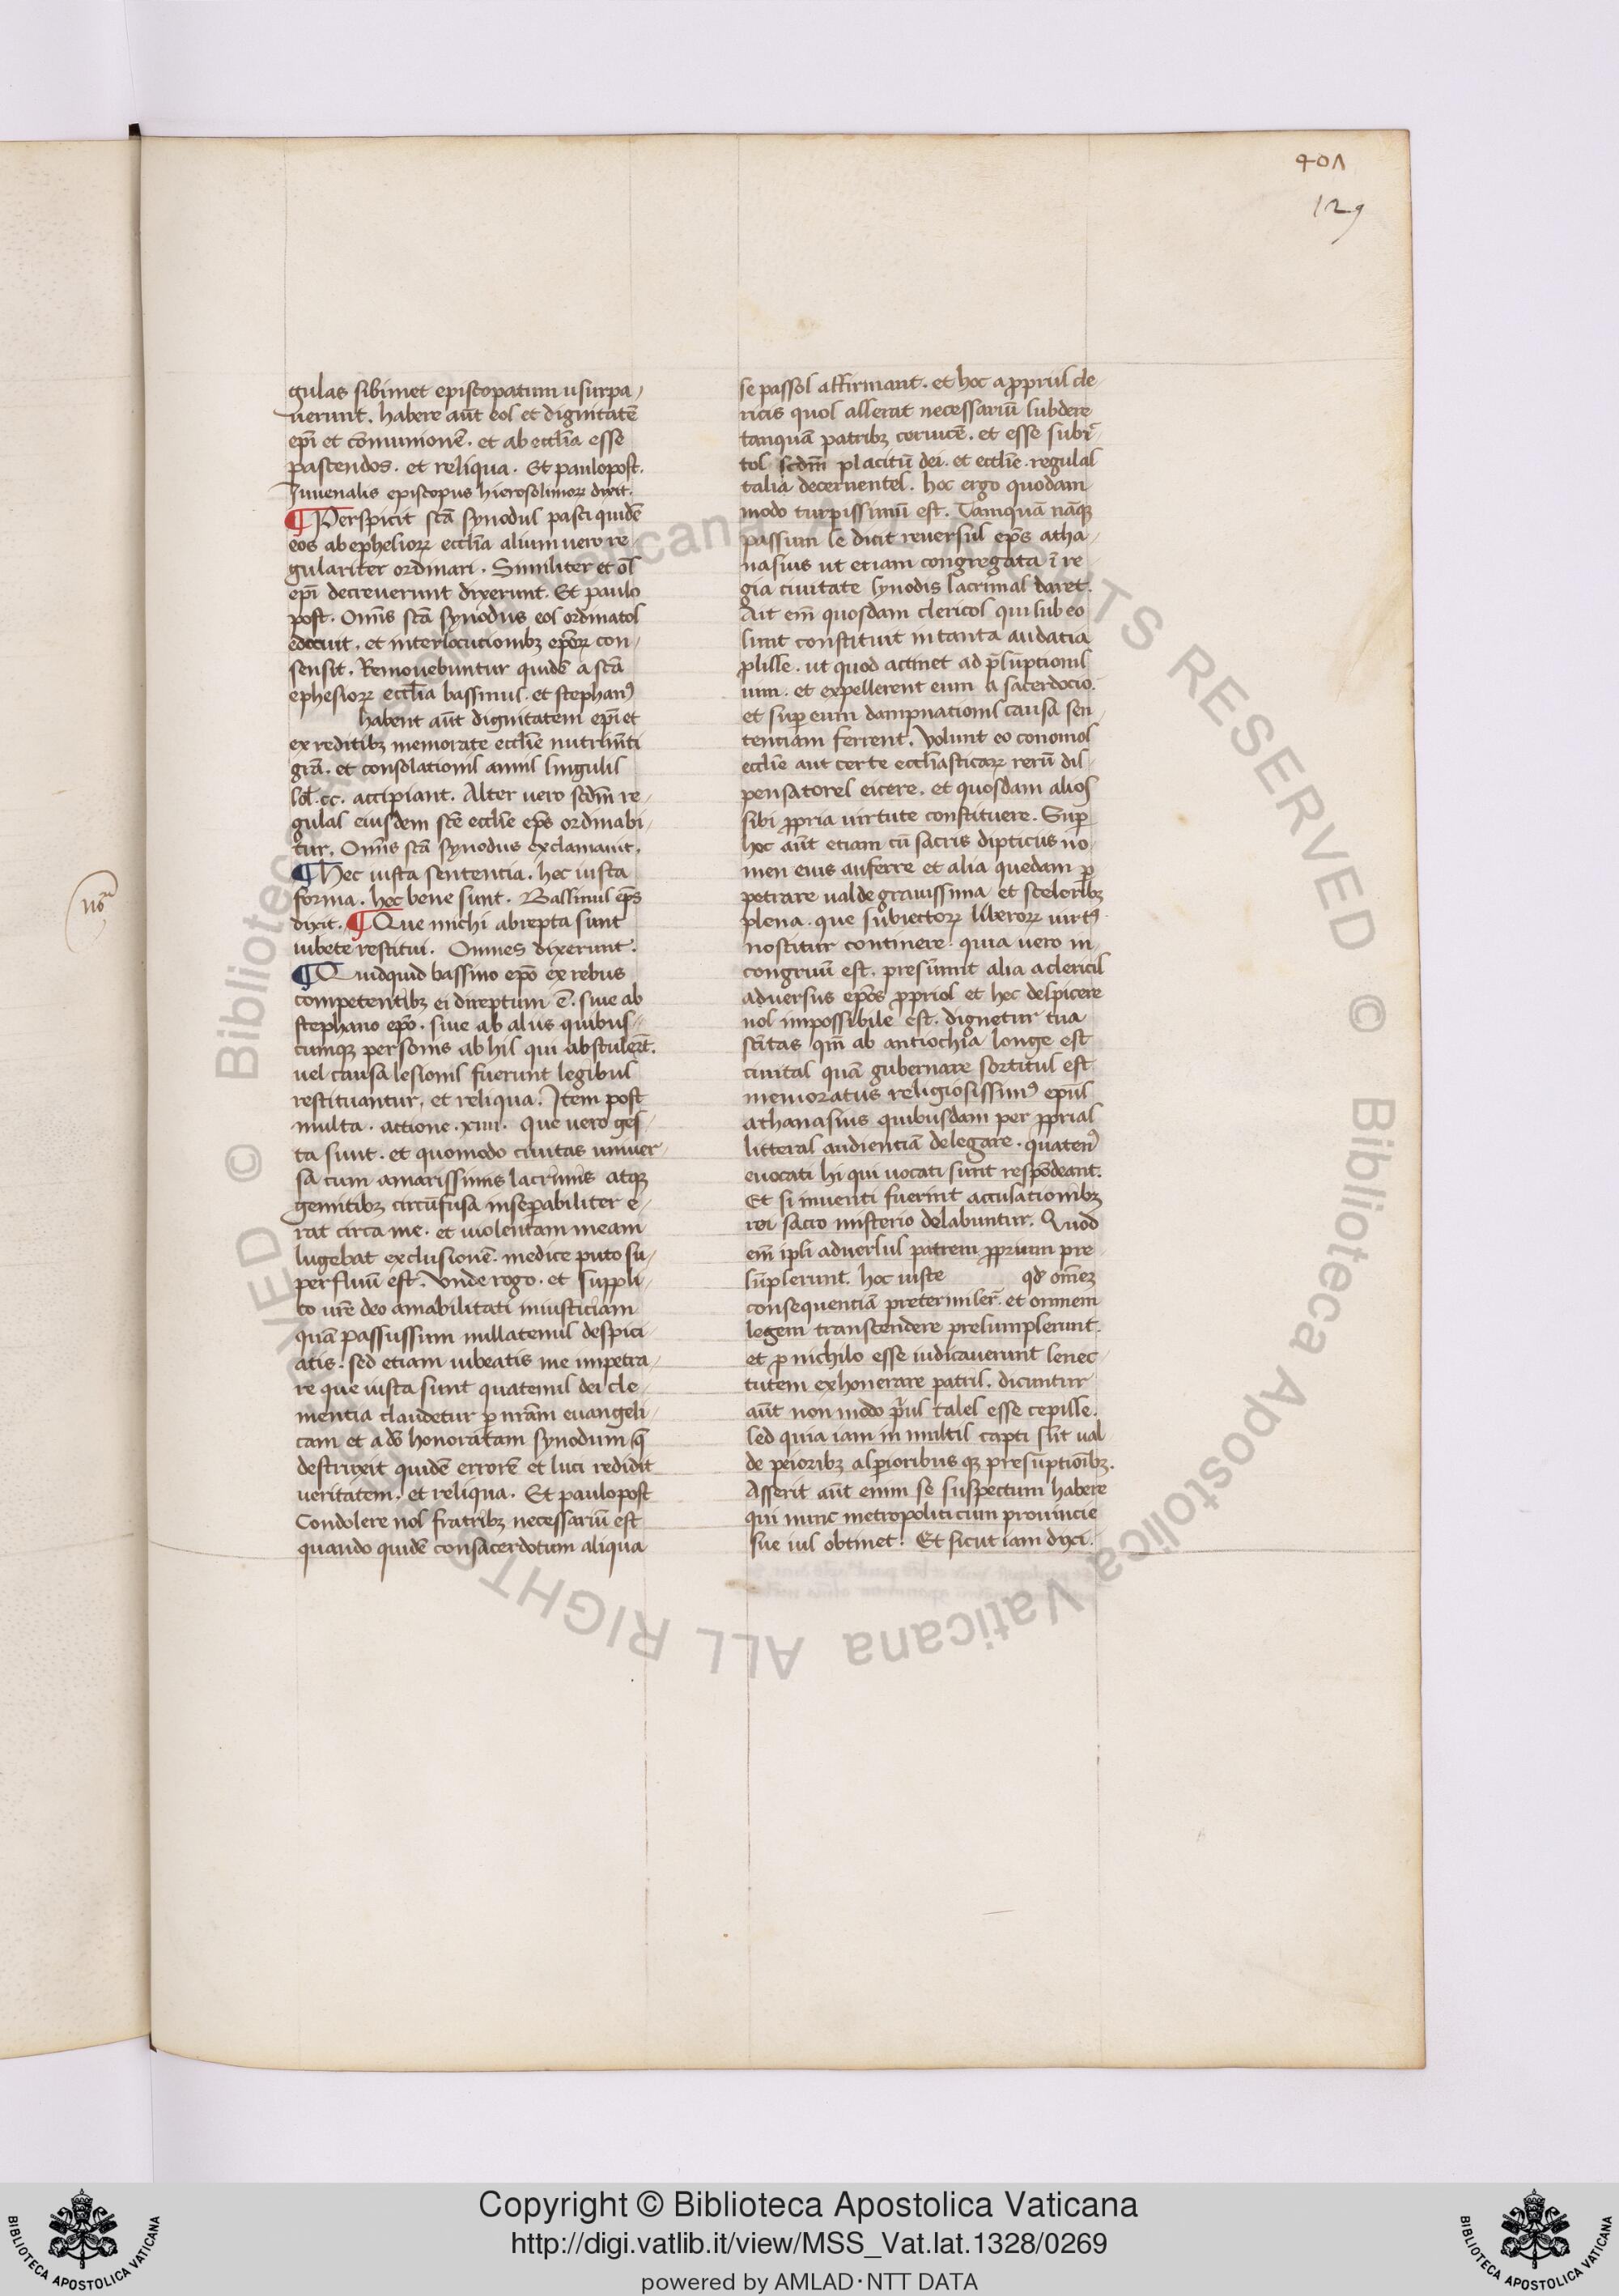 401
129
gulas sibimet episcopatum usurpa,
uerunt. habere aūt eos et dignitatē
epī et cōmunionē. et ab ecclīa esse
pascendos. et reliqua. Et paulopost.
Iuuenalis episcopus hierosolimoꝝ dixit.
¶ Perspicit scā synodus pasci quidē
eos ab ephesioꝝ ecclīa alium uero re,
gulariter ordinari. Similiter et oēs
epī decreuerunt dixerunt. Et paulo
post. Omīs scā synodus eos ordinatos
edocuit. et interlocutionibꝫ epōꝝ con,
sensit. Remouebuntur quidē a scā
ephesioꝝ ecclīa bassinus et stephanꝰ
habent aūt dignitatem epī et
ex reditibꝫ memorate ecclīe nutrimēti
grā. et consolationis annis singulis
sol. cc. accipiant. Alter uero scdm̄ re,
gulas eiusdem scē ecclīe epūs ordinabi,
tur. Omīs scā synodus exclamauit.
¶ Hec iusta sententia. hec iusta
forma. hec bene sunt. Bassinus ep̄s
dixit. ¶ Que michi abrepta sunt
iubete restitui. Omnes dixerunt.
¶ Quidquid bassino epō ex rebus
competentibꝫ ei direptum ē. siue ab
stephano epō. siue ab aliis quibus,
cumqꝫ personis ab his qui abstulerūt.
uel causa lesionis fuerunt legibus
restituantur. et reliqua. Item post
multa. actione. xiiii. Que uero ges,
ta sunt. et quomodo ciuitas uniuer,
sa cum amarissimis lacrimis atqꝫ
gemitibꝫ circūfusa inseꝑabiliter e,
rat circa me. et uiolentam meam
lugebat exclusionē. medice puto su,
perfluū est. Vnde rogo. et suppli,
co urē deo amabilitati iniusticiam
quā passus sum nullatenus despici,
atis. sed etiam iubeatis me impetra,
re que iusta sunt quatenus dei cle,
mentia claudetur ꝑ urām euangeli,
cam et adō honoratam synodum q̄
destruxit quidē errorē et luci redidit
ueritatem. et reliqua. Et paulopost
Condolere nos fratribꝫ necessariū est
quando quidē consacerdotum aliqua
se passos affirmant. et hoc a ꝓpriis cle,
ricis quos asserat necessariū subdere
tanquā patribꝫ ceruicē. et esse subiec
tos scdm̄ placitū dei. et ecclīe regulas
talia decernentes. hoc ergo quodam
modo turpissimū est. Tamquā nāqꝫ
passum se dicit reuersus ep̄s atha,
nasius ut etiam congregata ī re,
gia ciuitate synodis lacrimas daret.
Ait em̄ quosdam clericos qui sub eo
sunt constituit in tanta audatia
ꝓlisse. ut quod actinet ad p̄sūptionis
uim. et expellerent eum a sacerdocio.
et suꝑ eum dampnationis causa sen
tentiam ferrent. Volunt eo conomos
ecclīe aut certe ecclīasticaꝝ rerū dis,
pensatores eicere. et quosdam alios
sibi ꝓpria uirtute constituere. Suꝑ
hoc aūt etiam cū sacris dipticiis no,
men eius auferre et alia quedam ꝑ
petrare ualde grauissima et sceleribꝫ
plena. que subiectoꝝ liberoꝝ uirtꝰ
noscitur continere. quia uero in,
congruū est. presumit alia a clericis
aduersus epōs ꝓprios et hec despicere
nos impossibile est. dignetur tua
scītas qm̄ ab antiochia longe est
ciuitas quā gubernare sortitus est
memoratus religiosissimꝰ epūs
athanasius quibusdam per ꝓprias
litteras audientiā delegare. quatenꝰ
euocati hi qui uocati sunt respōdeant.
Et si inuenti fuerint accusationibꝫ
rei sacro misterio delabuntur. Quod
em̄ ipsi aduersus patrem ꝓprium pre
sūpserunt. hoc iuste qd̄ omēꝫ
consequentiā pretermiser̄. et omnem
legem transcendere presumpserunt.
et ꝓ nichilo esse iudicauerunt senec,
tutem exhonerare patris. dicuntur
aūt non modo p̄us tales esse cepisse.
sed quia iam in multis capti sūt ual
de peioribꝫ aspioribus qꝫ presūptiōibꝫ.
Asserit aūt enim se suspectum habere
qui nunc metropoliticum prouincie
sue ius obtinet. Et sicut iam dixi.
Copyright © Biblioteca Apostolica Vaticana
http://digi.vatlib.it/view/MSS_Vat.lat.1328/0269
powered by AMLAD·NTT DATA